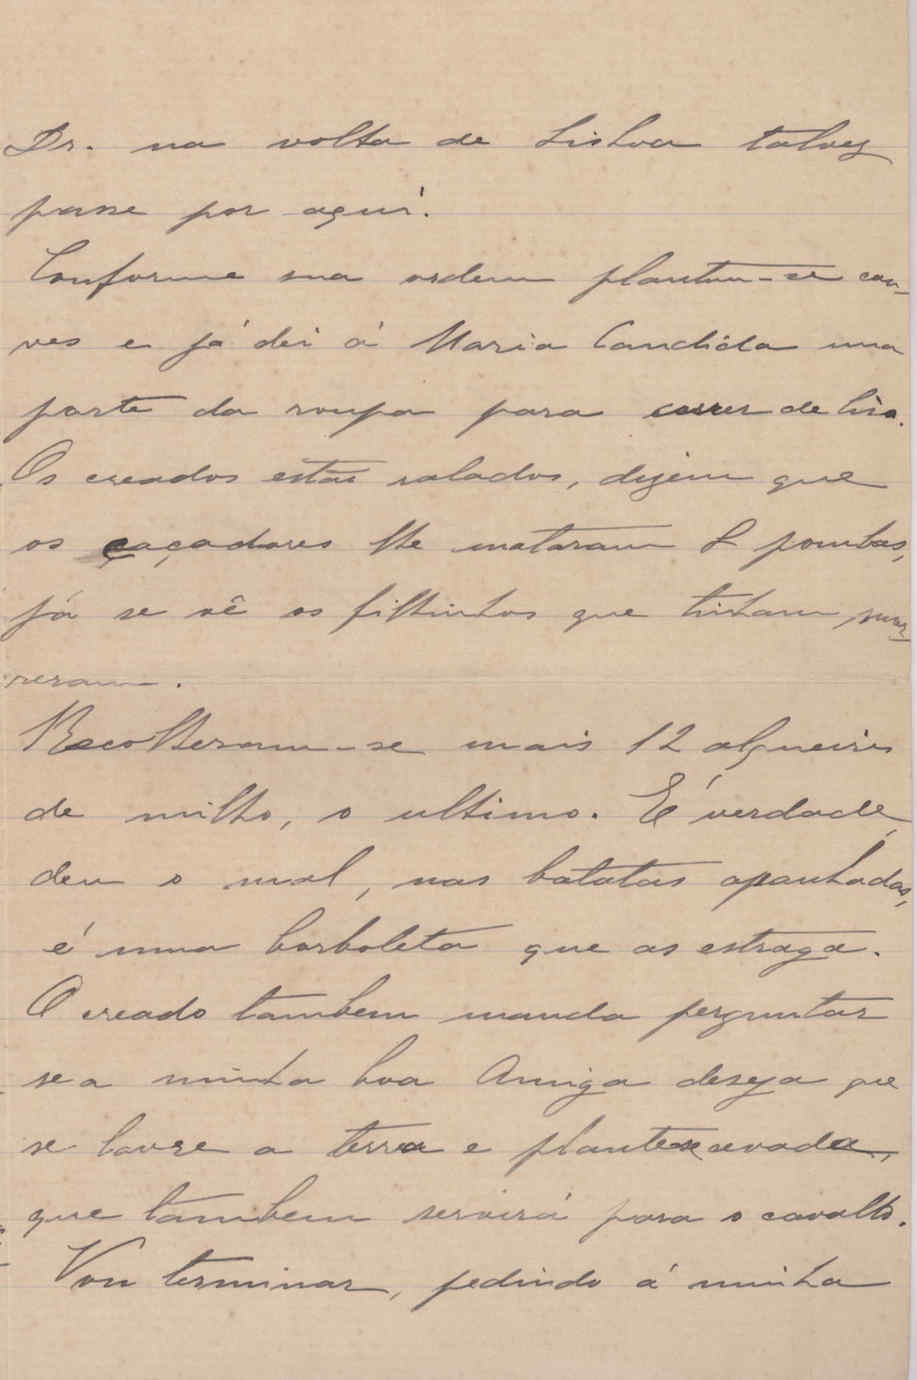 Dr. na volta de Lisboa talvez
passe por aqui.
Conforme sua ordem plantou-se cou-
ves e já dei á Maria Candida uma
parte da roupa para correr de lixa.
Os creados estão ralados, dizem que
os caçadores lhe mataram 8 pombas,
já se vê os filhinhos que tinham, mor-
reram.
Recolheram-se mais 12 alqueires
de milho, o ultimo. É verdade,
deu o mal, nas batatas apanhadas,
é uma borboleta que as estraga.
O creado tambem manda perguntar
se a minha boa Amiga deseja que
se lavre a terra e plante-se cevada,
que tambem servirá para o cavallo.
Vou terminar, pedindo á minha